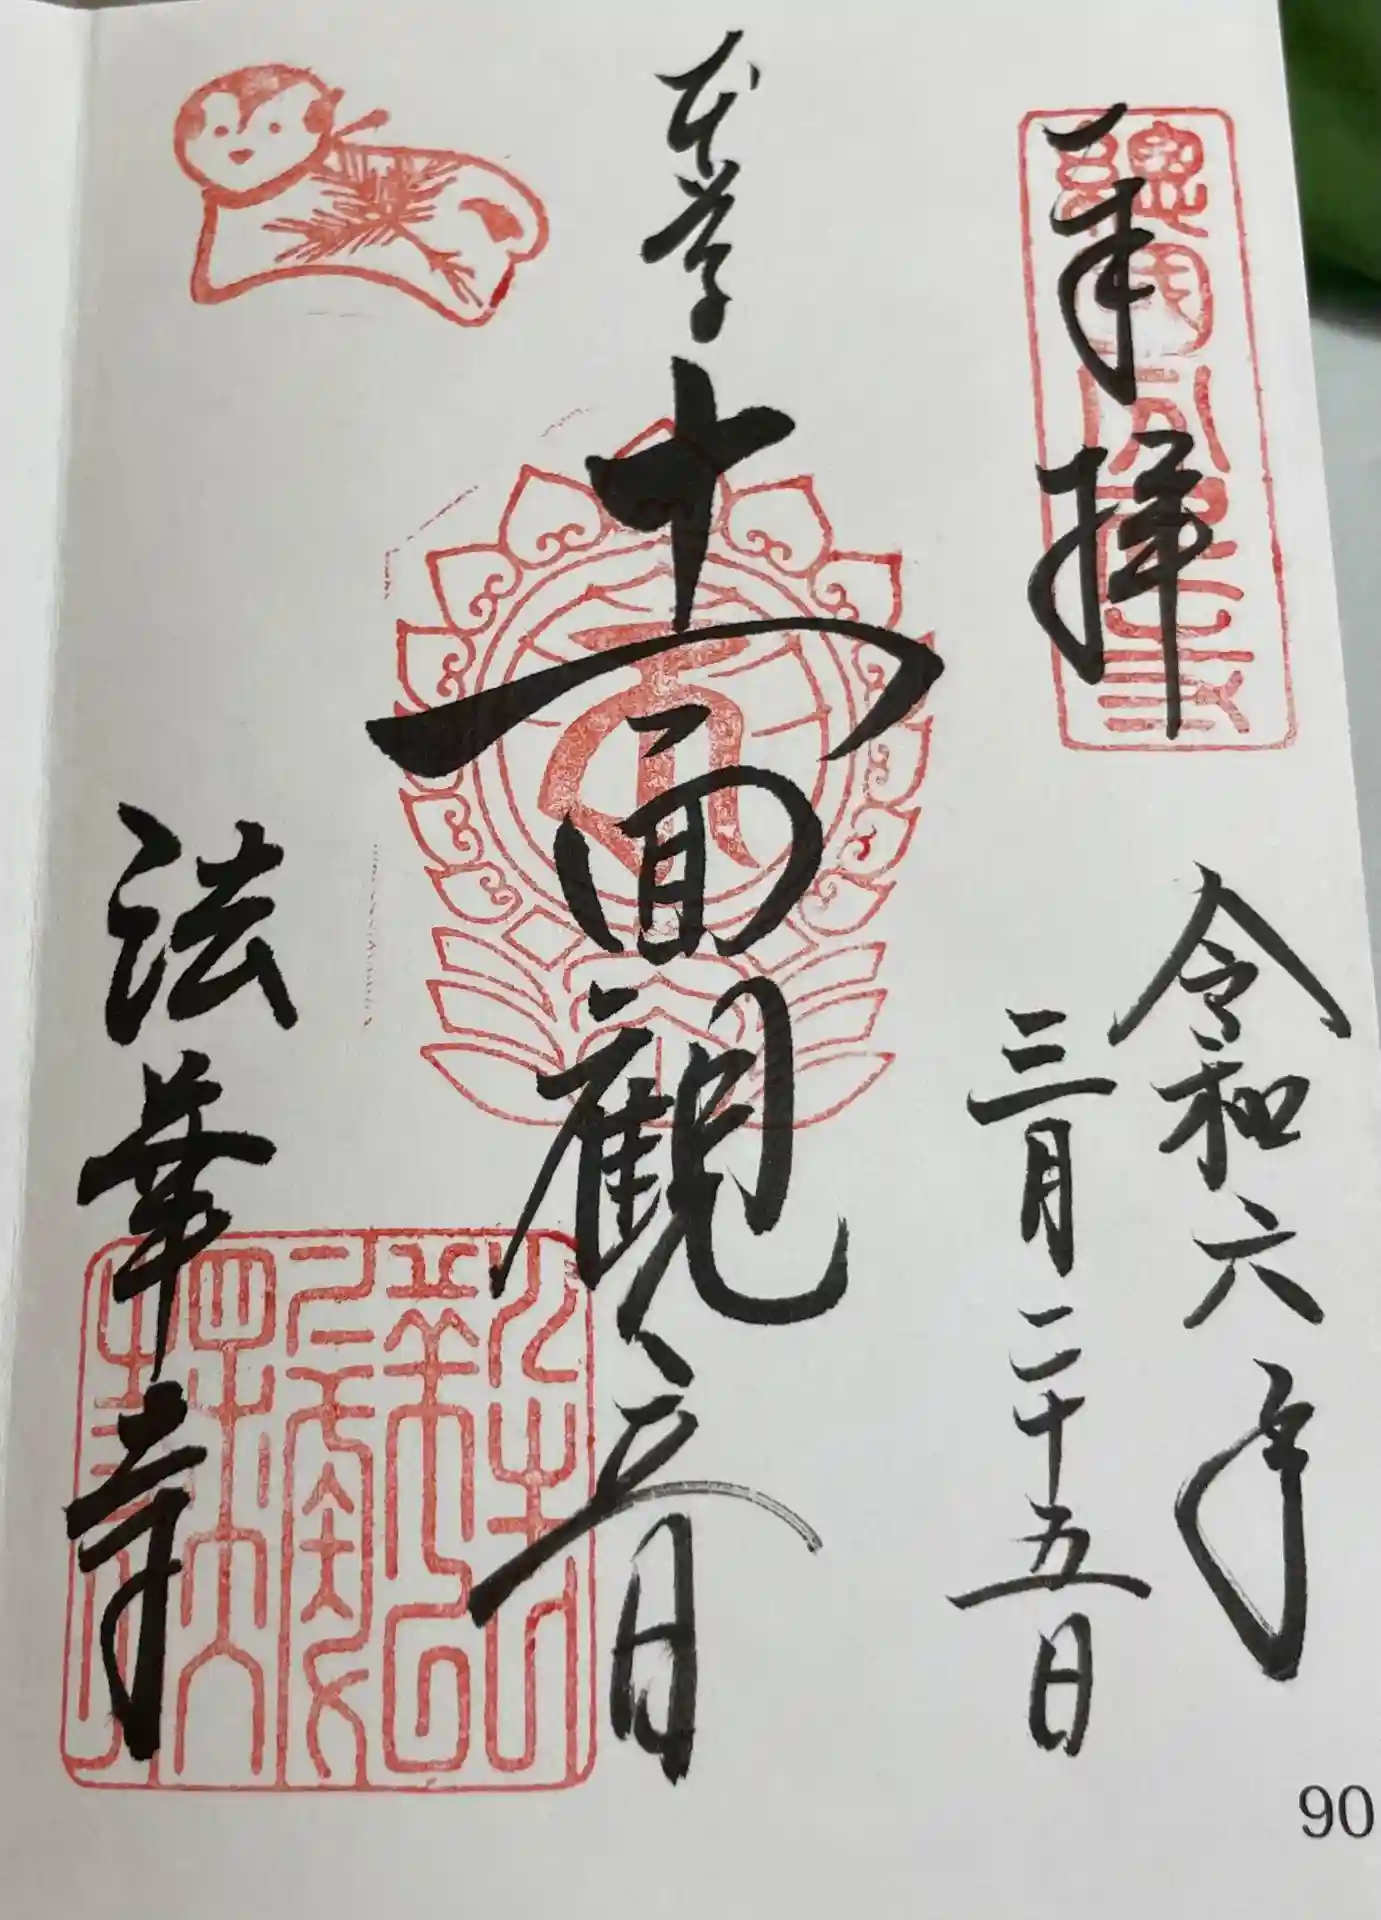 奉拝
令和六年
三月二十五日
本尊
十一面観音
法華寺
總国分尼寺
90